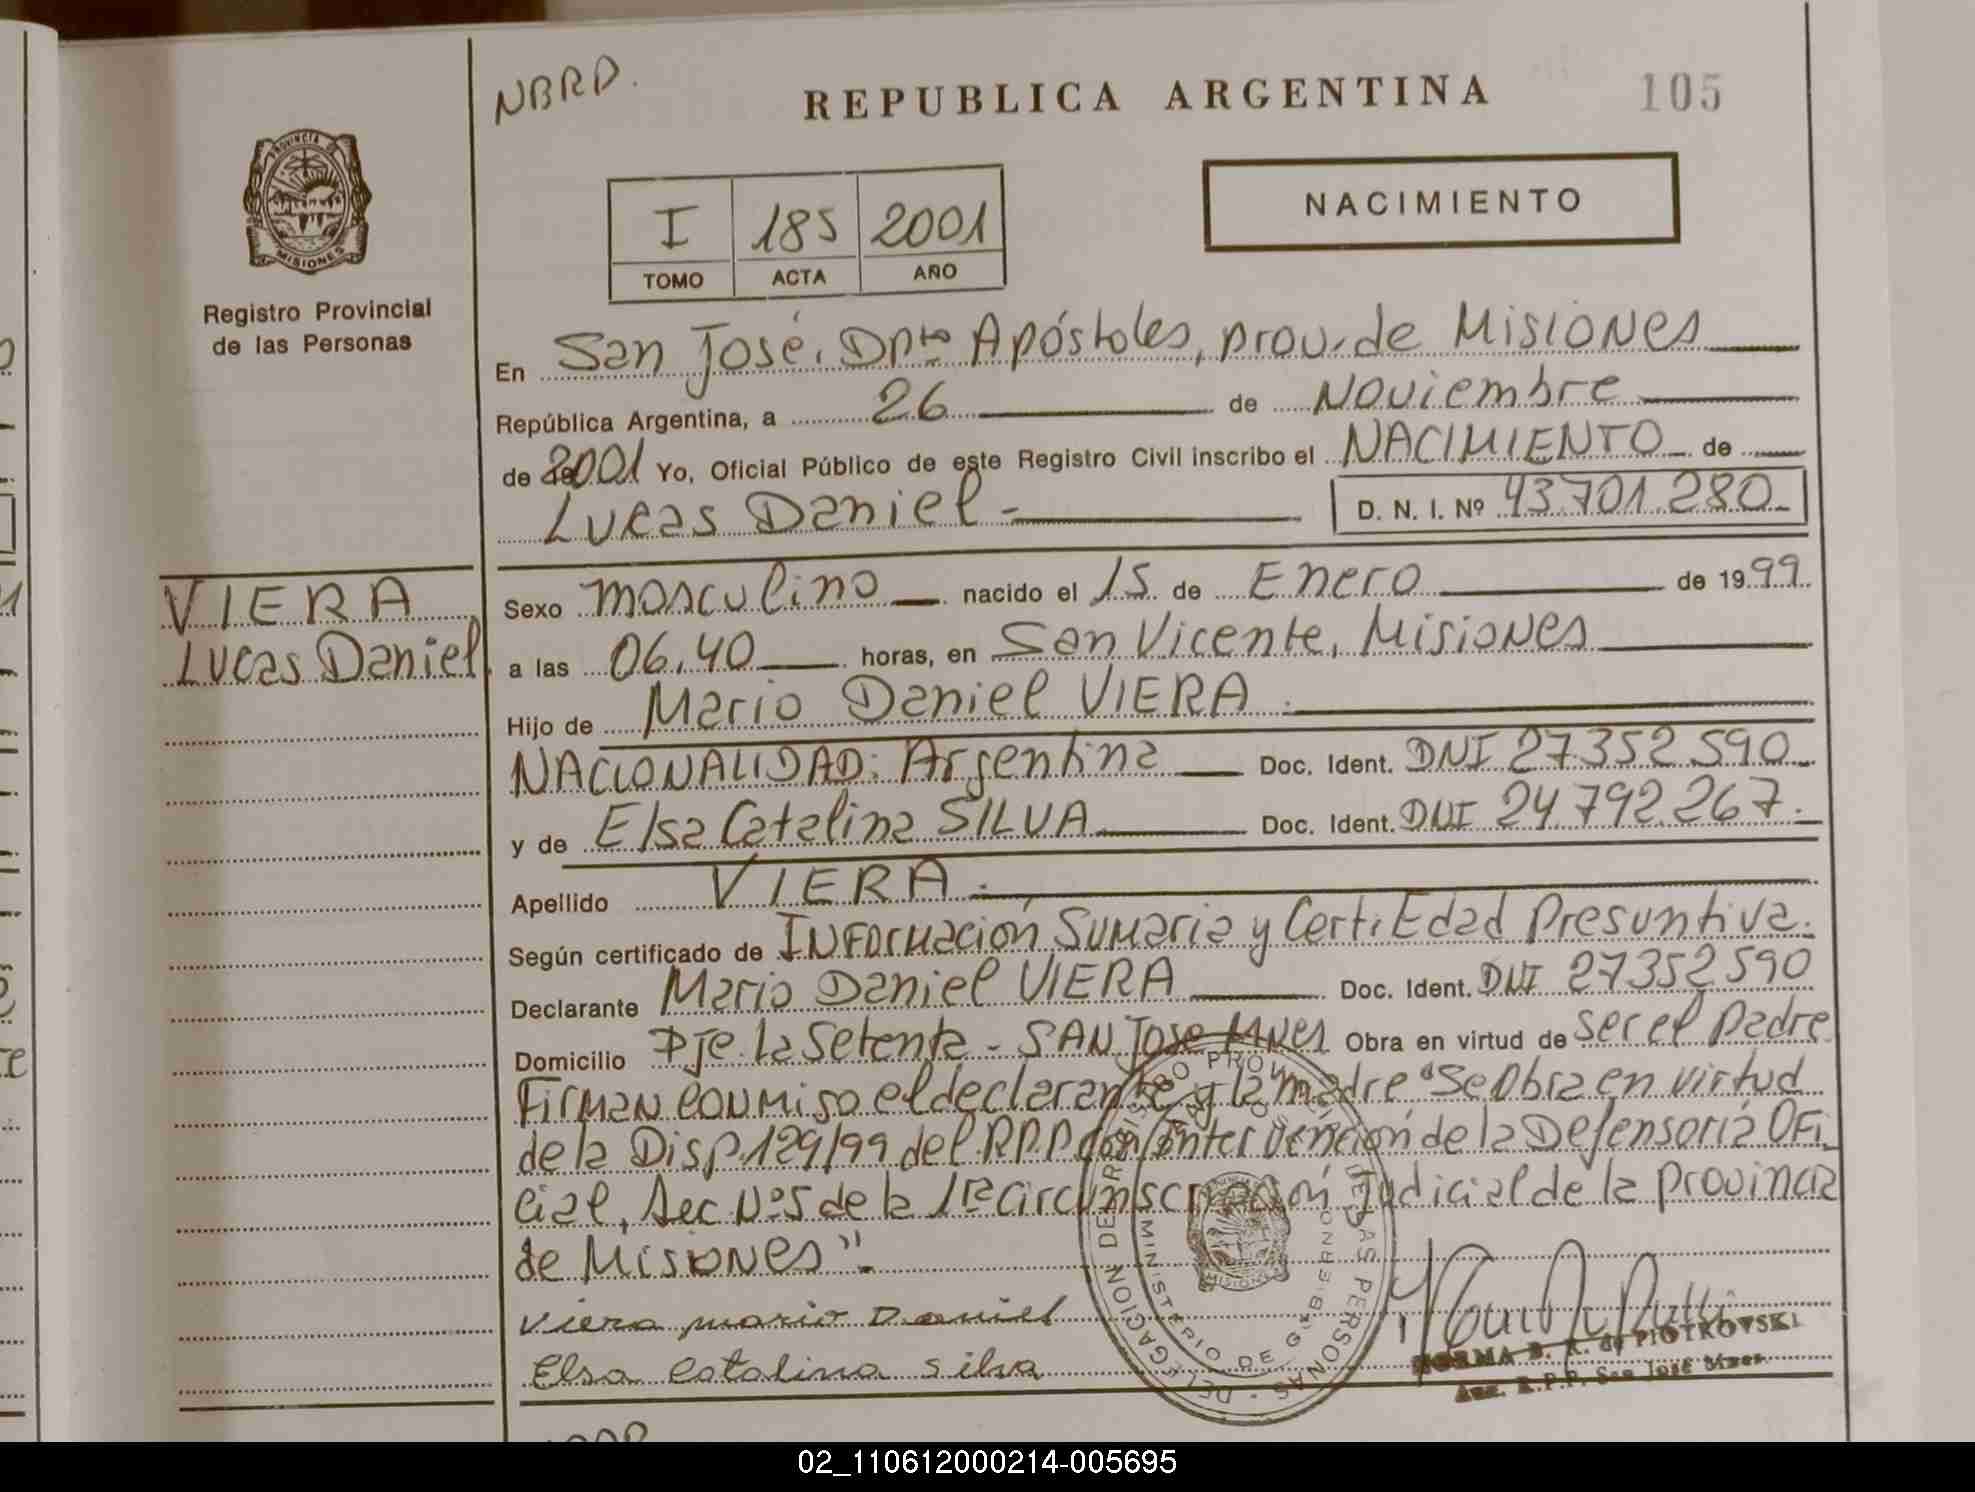 NBRD.
REPUBLICA ARGENTINA
105
PROVINCIA DE
MISIONES
Registro Provincial
de las Personas
I 185 2001
TOMO ACTA AÑO
NACIMIENTO
En San José, Dpto Apóstoles, prov. de Misiones
República Argentina, a 26 de Noviembre
de 2001 Yo, Oficial Público de este Registro Civil inscribo el NACIMIENTO de
Lucas Daniel - D. N. I. Nº 43.701.280-
VIERA
Lucas Daniel
Sexo masculino nacido el 15 de Enero de 1999
a las 06.40 horas, en San Vicente, Misiones
Hijo de Mario Daniel VIERA.
NACIONALIDAD: Argentina Doc. Ident. DNI 27352590-
y de Elsa Catalina SILVA Doc. Ident. DNI 24.792.267.
Apellido VIERA.
Según certificado de Información Sumaria y Cert. Edad Presuntiva.
Declarante Mario Daniel VIERA Doc. Ident. DNI 27352590
Domicilio Pje. la Setenta - SAN Jose Mnes Obra en virtud de ser el padre
Firman conmigo el declarante y la madre "Se Obra en virtud
de la Disp. 129/99 del R.P.P con intervención de la Defensoría Ofi
cial, Sec. Nº5 de la 1ra Circunscripción Judicial de la provincia
de Misiones".
Viera mario Daniel
Elsa Catalina Silva
DELEGACION DE REGISTRO PROVINCIAL DE LAS PERSONAS
MINISTERIO DE GOBIERNO
MISIONES
NORMA B. R. de PIOTROVSKI
Aux. R.P.P. San José Mnes.
02_110612000214-005695